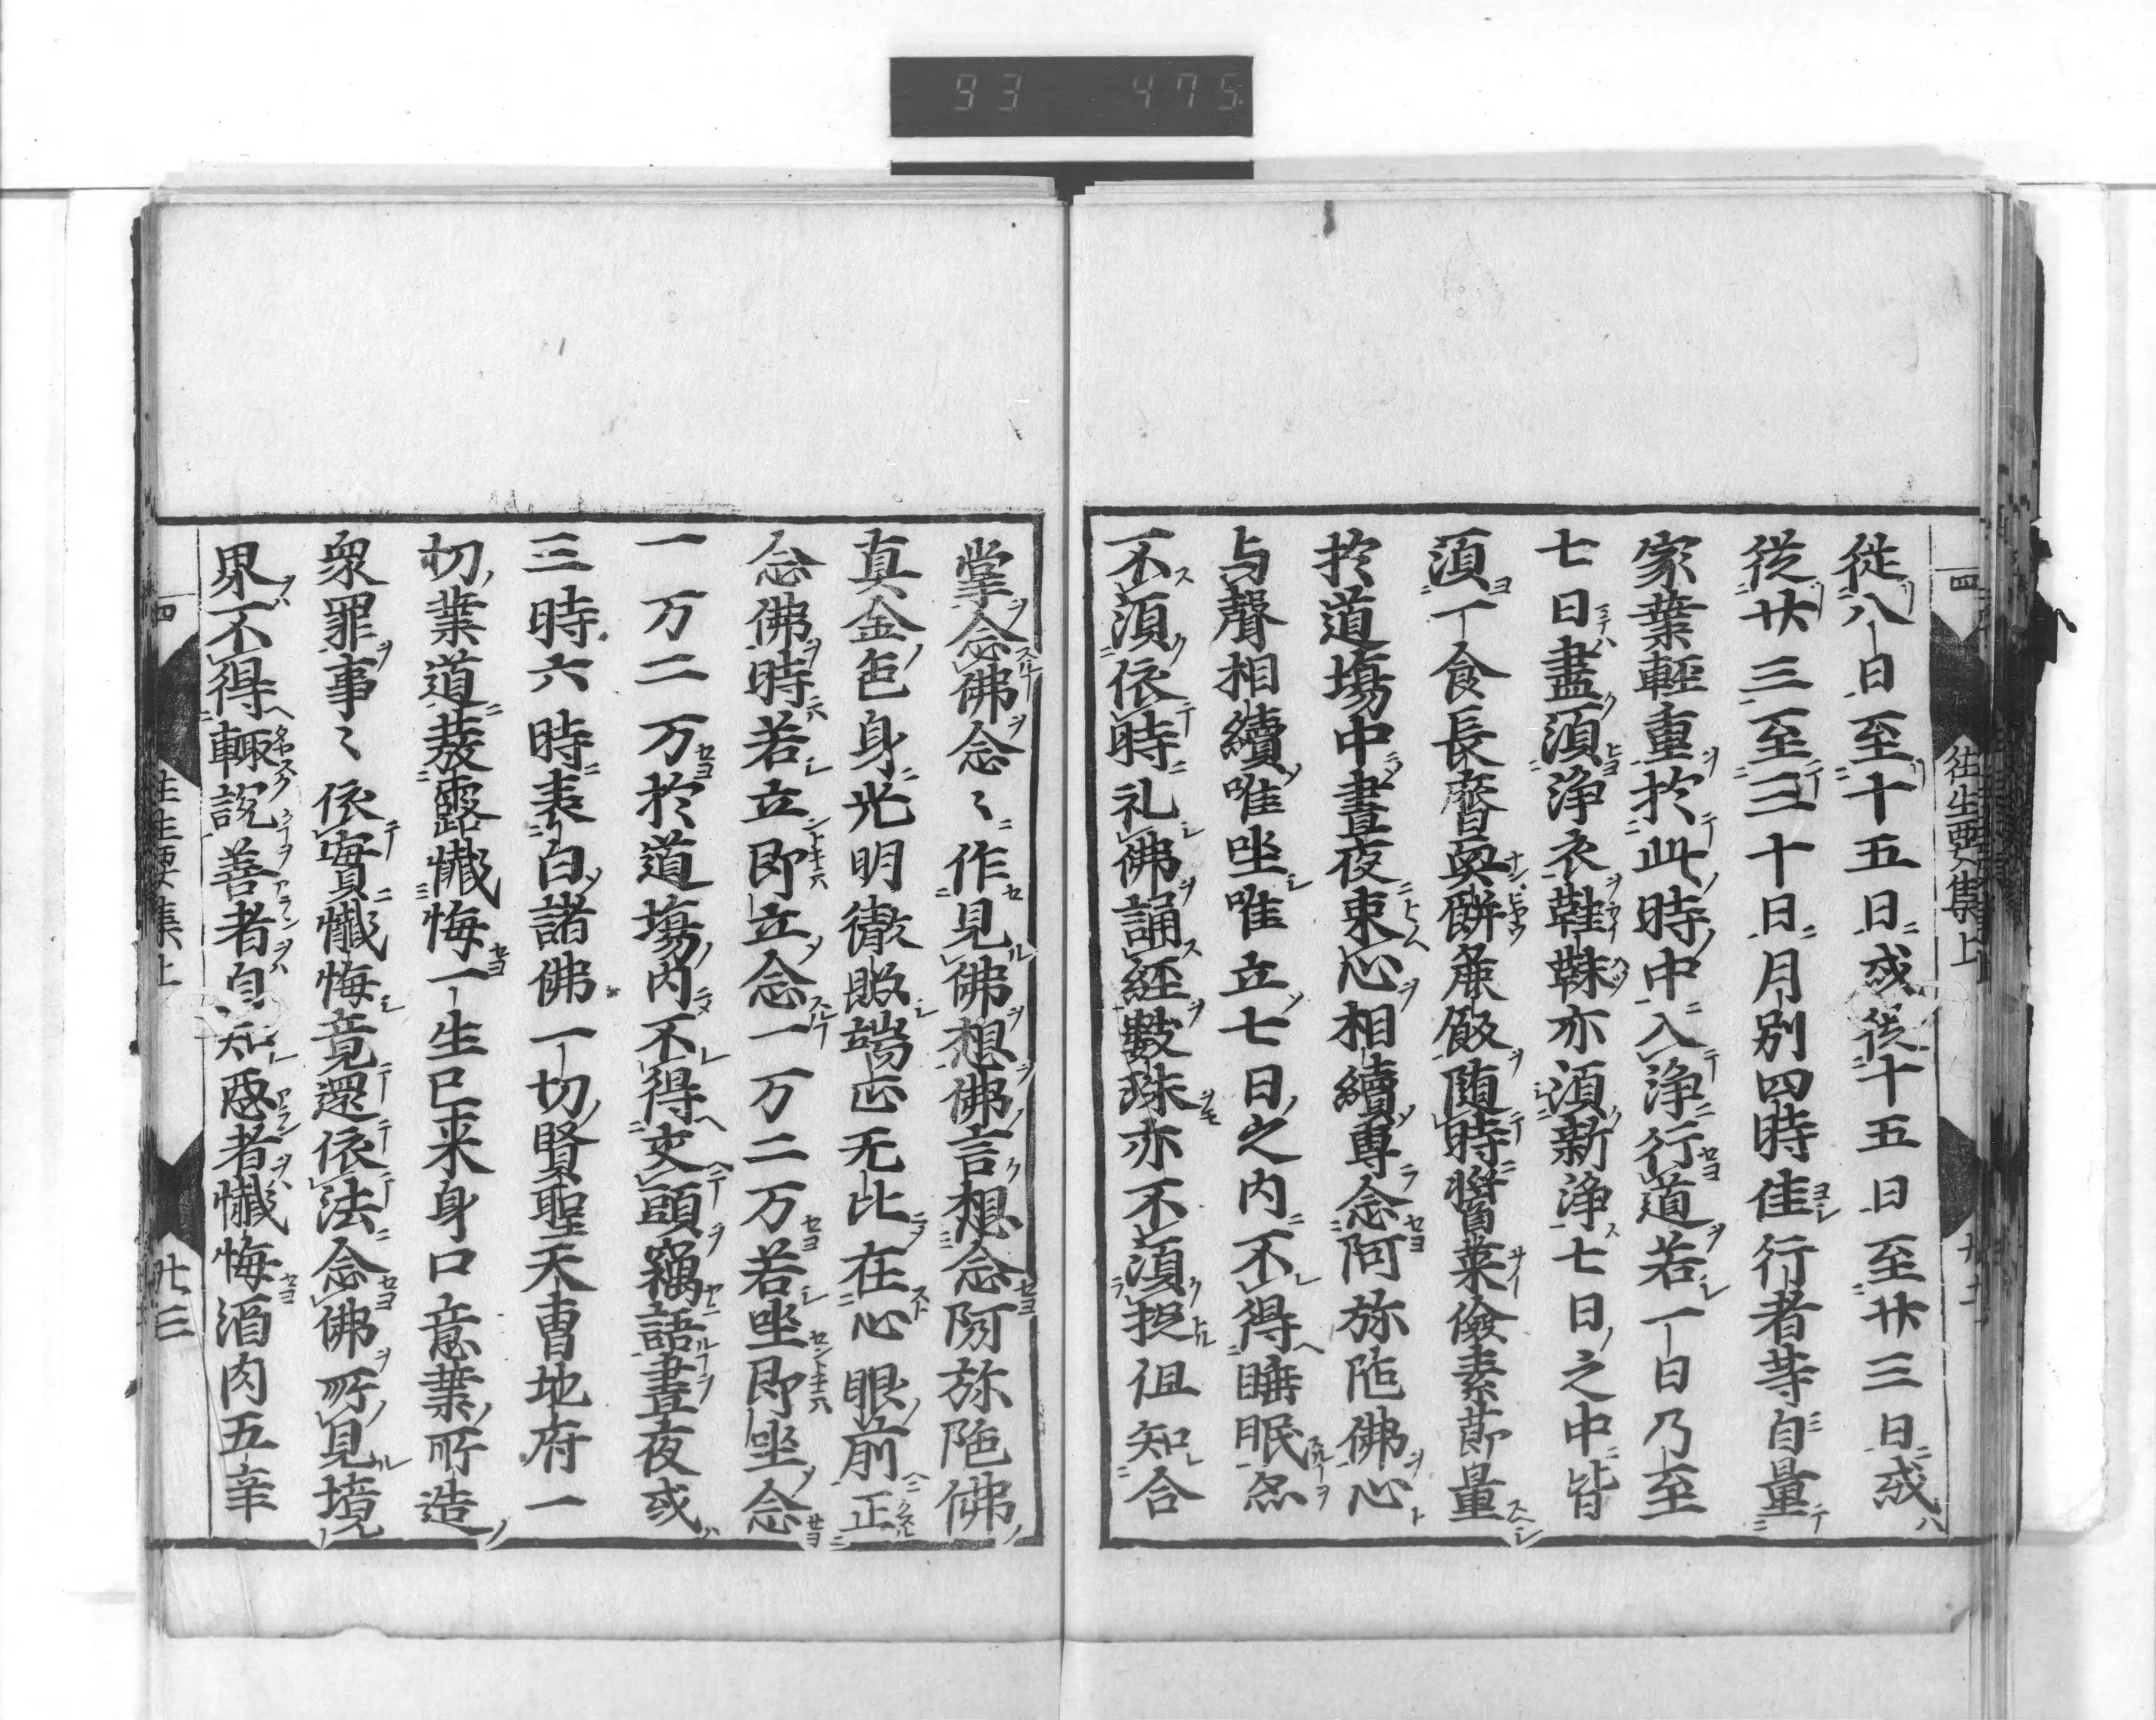 93 475
従八日至十五日或従十五日至廾三日或
従廾三至三十日月別四時佳行者等自量
家業軽重於此時中入浄行道若一日乃至
七日盡湏浄衣鞋靺亦湏新浄七日之中皆
湏一食長齋耎餅麁飯随時醤菜儉素莭量
於道場中晝夜束心相續專念阿弥陁佛心
与聲相續唯坐唯立七日之内不得睡眠亦
不湏依時礼佛誦經數珠亦不湏捉但知合
掌念佛念〻作見佛想佛言想念阿弥陁佛
真金色身光明徹照端正无比在心眼前正
念佛時若立即立念一万二万若坐即坐念
一万二万於道場内不得交頭竊語晝夜或
三時六時表白諸佛一切賢聖天曹地府一
切業道發露懺悔一生已来身口意業所造
衆罪事〻依實懺悔竟還依法念佛所見境
界不得輙説善者自知惡者懺悔酒肉五辛
四
往生要集上
四
往生要集上
廿三